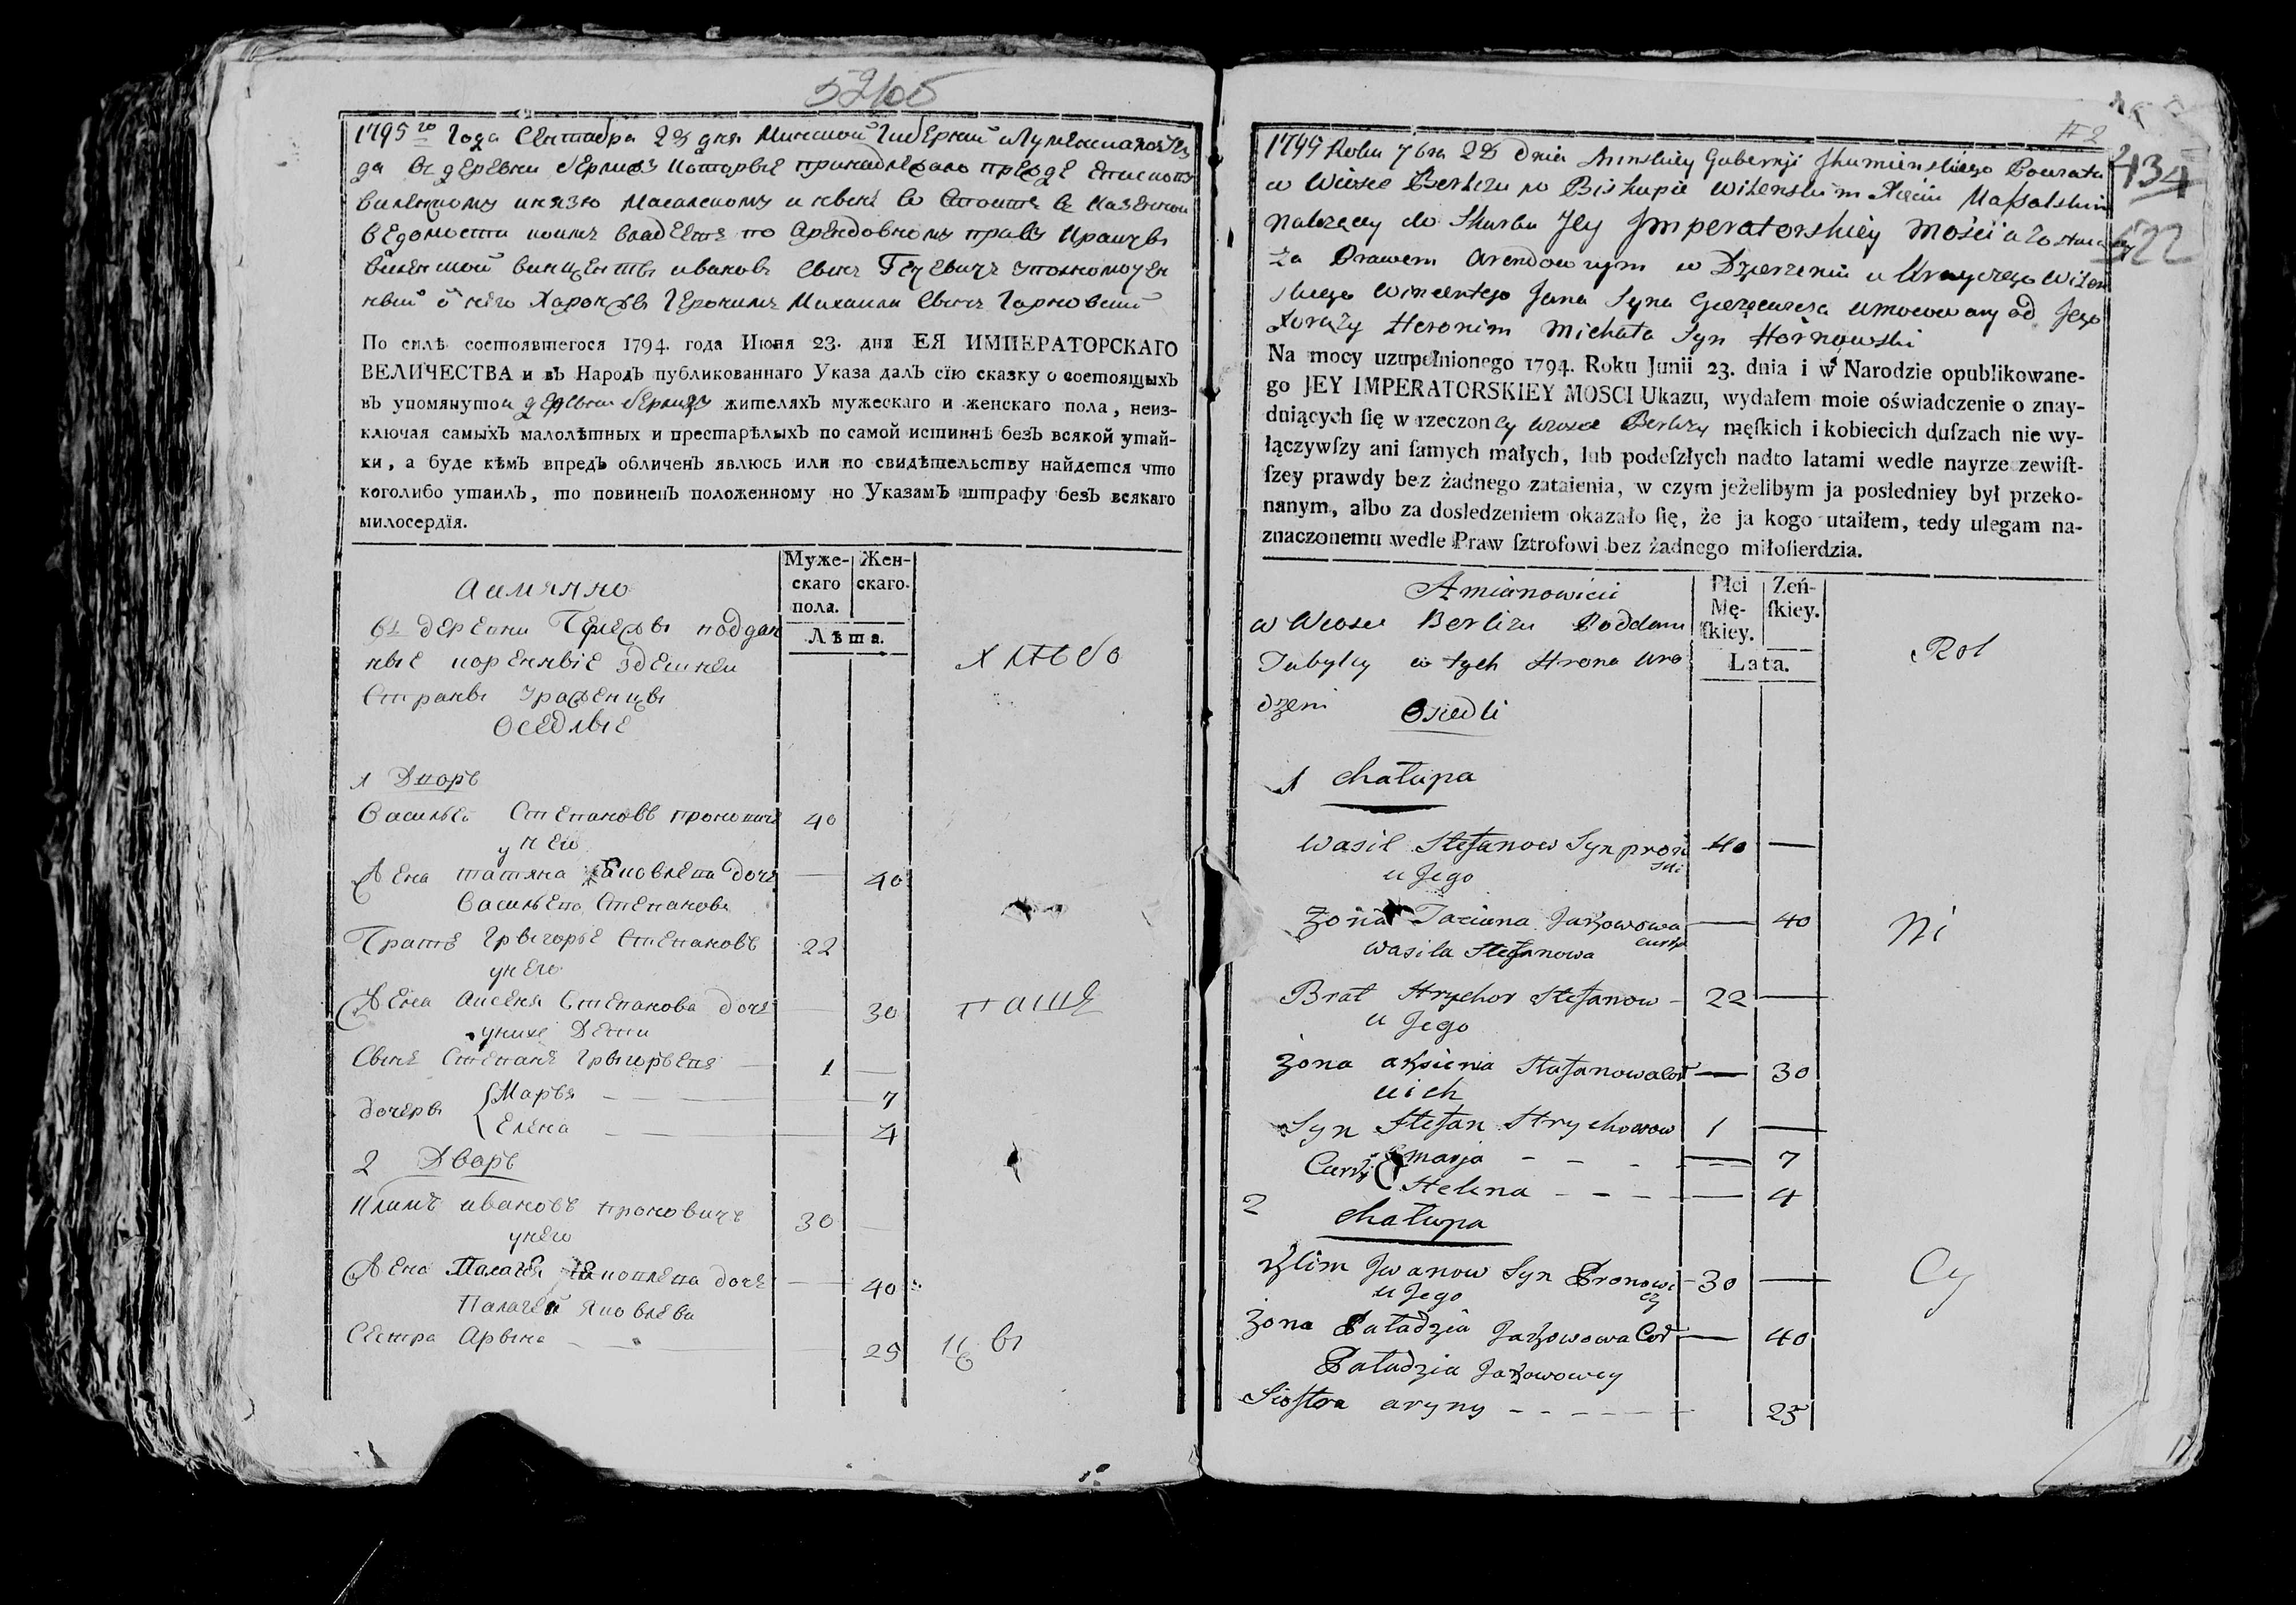 52/65
1795го Года Сентабра 23 дня Минской Губернии Игуменскаго Уез
да въ деревни Берлизу которые принадлежало прежде Епископу
виленскому князю Масалскому и ныне во стоите в казенной
ведомости коимъ владеете по Арендовному праву Крайчы
виленской винценты иванов сынъ упольномочен
ный о него Харонжы Героними Михаила сынъ Горновский
По силѣ состоявшегося 1794. года Июня 23. дня ЕЯ ИМПЕРАТОРСКАГО
ВЕЛИЧЕСТВА и вЪ НародЪ публикованнаго Указа далЪ сїю сказку о состоящыхЪ
вЪ упомянутои деревни Берлизу жителяхЪ мужескаго и женскаго пола, неиз-
ключая самыхЪ малолѣтных и престарѣлыхЪ по самой истиннѣ безЪ всякой утай-
ки, а буде кѣмЪ впредЪ обличенЪ явлюсь или по свидѣтельству найдется что
коголибо утаилЪ, то повиненЪ положенному по УказамЪ штрафу безЪ всякаго
милосердїя.
Муже-скаго пола.
Жен-скаго.
Лѣта.
аимянно
въ деревни поддан
ные коренные здешнеи
Страны Уроженцы
Оседлые
хлебо
1 Дворъ
Василей Степановъ пронович 40
у нею
Жена татяна Яковлева дочъ — 40
Васильева Степанова
Братъ Грыгорые Степановъ 22
у него
Жена Аксеня Степанова дочъ — 30
паше
у них Дети
Сынъ Степанъ Грыгорьевъ — 1 —
дочеры { Марья — 7
Елена — 4
2 Дворъ
Климъ ивановъ проновичъ 30 —
у него
Жена Палагея Яковлева дочъ — 40
Палагей Яковлева
Сестра Арына — 25
цы
# 2
434
522
1795 Roku 7bra 23 Dnia Minskiey Gubernji Jhumienskiego Powiatu
w Wiosce Berlizu po Biskupie Wilenskim Xięciu Massalskim
Należący do Skarbu Jey Jmperatorskiey Mości a zostaiący
za Prawem Arendownym w Dzierżeniu u Krayczego Wilen
skiego Wincentego Jana Syna umocowany od Jego
Xorąży Heronim Michała Syn Hornowski
Na mocy uzupełnionego 1794. Roku Junii 23. dnia i w Narodzie opublikowane-
go JEY IMPERATORSKIEY MOSCI Ukazu, wydałem moie oświadczenie o znay-
dniących ſię w rzeczoney wiosce Berlizy męſkich i kobiecich duſzach nie wy-
łączywſzy ani ſamych małych, lub podeſzłych nadto latami wedle nayrzeczewiſt-
ſzey prawdy bez żadnego zataienia, w czym jeżelibym ja posledniey był przeko-
nanym, albo za dosledzeniem okazało ſię, że ja kogo utaiłem, tedy ulegam na-
znaczonemu wedle Praw ſztrofowi bez żadnego miłoſierdzia.
Płci Mę-ſkiey.
Zeń-ſkiey.
Lata.
Amianowicii
w Wiosce Berlizu Poddani
Tubylcy w tych strona uro
dzeni
Osiedli
Rol
1 chałupa
Wasil Stefanow Syn pron 40 —
u Jego
żona Taciana Jakowowa curka — 40
Wasila Stefanowa
ni
Brat Hrychor Stefanow 22 —
u Jego
żona aksienia Stafanowa Cor — 30
u ich
Syn Stefan Hrychorow 1 —
Curki { marja - - - — 7
Helena - - - — 4
2 chałupa
Klim Jwanow Syn Pronowicz 30 —
u Jego
Cy
żona Paładzia Jakowowa Cor — 40
Paładzia Jakowowey
Siostra aryny - - - - - 25